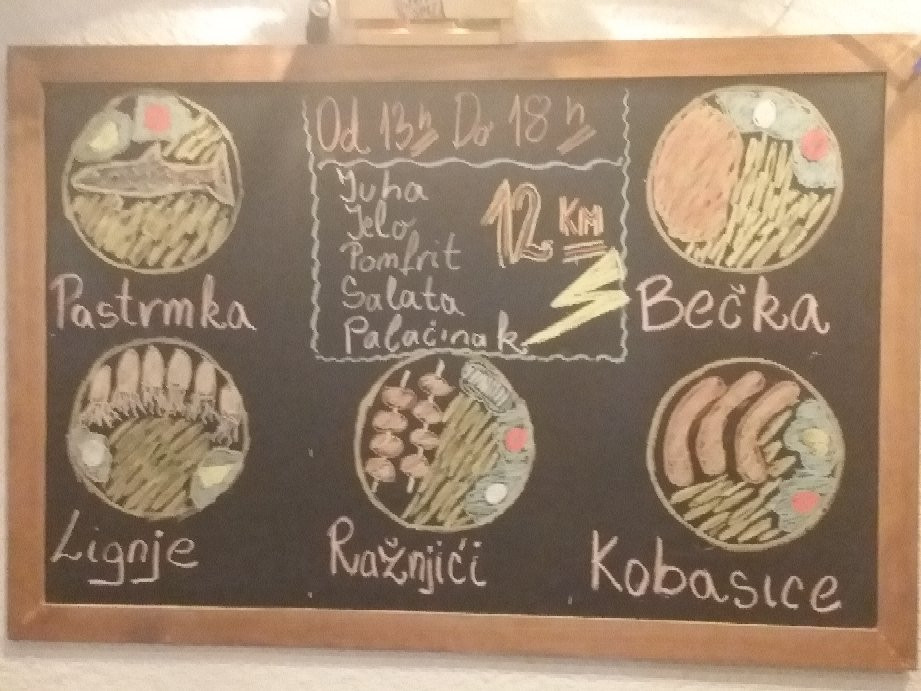 Od 13h Do 18h
Juha
Jelo
Pomfrit
Salata
Palačinak
12 KM
Pastrmka
Bečka
Lignje
Ražnjići
Kobasice